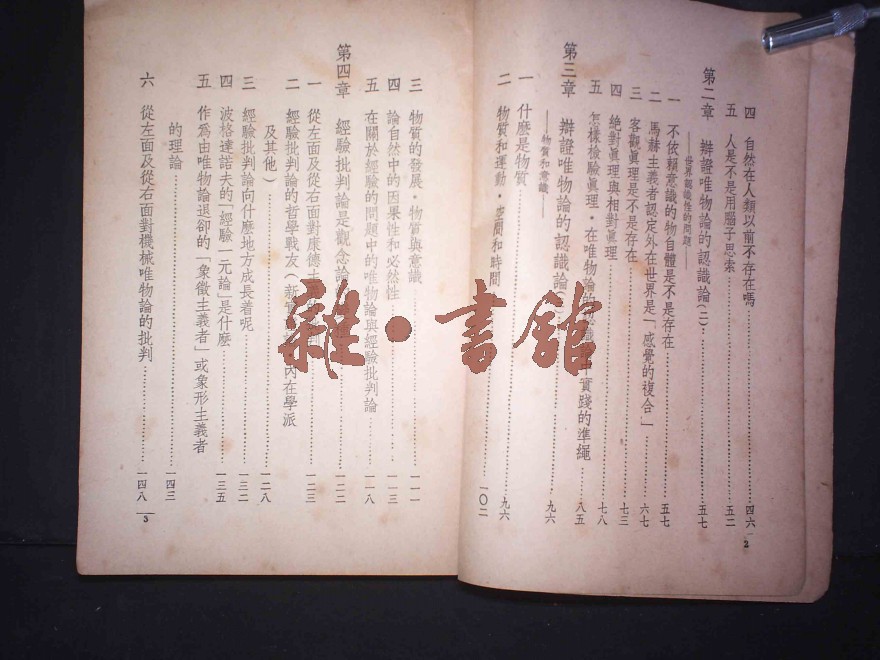 四 自然在人類以前不存在嗎……四六
五 人是不是用腦子思索……五二
第二章 辯證唯物論的認識論(二)……五七
——世界認識性的問題——
一 不依賴意識的物自體是不是存在……五七
二 馬赫主義者認定外在世界是「感覺的複合」……六七
三 客觀真理是不是存在……七三
四 絕對真理與相對真理……七八
五 怎樣檢驗真理・在唯物論的認識論中實踐的準繩……八五
第三章 辯證唯物論的認識論……九六
——物質和意識——
一 什麽是物質……九六
二 物質和運動・空間和時間……一〇二
2
三 物質的發展・物質與意識……一一一
四 論自然中的因果性和必然性……一一三
五 在關於經驗的問題中的唯物論與經驗批判論……一一八
第四章 經驗批判論是觀念論……一二二
一 從左面及從右面對康德……一二三
二 經驗批判論的哲學戰友(新……內在學派
及其他)……一二八
三 經驗批判論向什麽地方成長着呢……一三二
四 波格達諾夫的「經驗一元論」是什麽……一三五
五 作為由唯物論退卻的「象徵主義者」或象形主義者
的理論……一四三
六 從左面及從右面對機械唯物論的批判……一四八
3
雜・書館